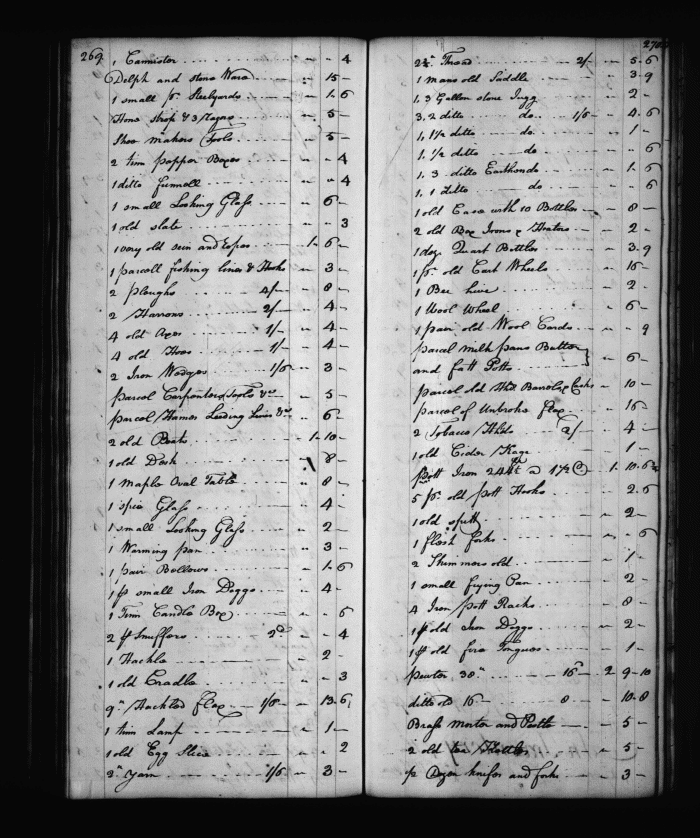 269
1 Cannister .. .. - - 4
Delph and stone Ware - - 15 -
1 small pr. Steelyards - - 1 . 6
Hone strop & 3 - - 5 -
Shoe makers Tools - - 5 -
2 tinn pepper Boxes - - - 4
1 ditto funnell - - - 4
1 small Looking Glass - - 6 -
1 old slate - - - 3
1 very old sein and Ropes - 1 - 6 -
1 parcell fishing lines & Hooks - 3 -
2 Ploughs 4/- - 8 -
2 Harrows 2/- - 4 -
4 old Axes 1/- - 4 -
4 old Hoes 1/- - 4 -
2 Iron Wedges 1/6 - 3 -
parcel Carpenters Tools &ca - 5 -
parcel Hames Leading Lines &ca - 6 -
2 old Boats 1 - 10 -
1 old Desk - 8 -
1 Maple Oval Table - 8 -
1 spice Glass - 4 -
1 small Looking Glass - 2 -
1 Warming pan - 3 -
1 pair Bellows - 1 - 6
1 pr small Iron Doggs - 4 -
1 Tinn Candle Box - - 6
2 pr Snuffers 2d - - 4
1 Hackle - 2 -
1 old Cradle - - 3
9 lb Hackled Flax 1/6 - 13 . 6
1 tinn Lamp - 1 -
1 old Egg Slice - - 2
2 lb Yarn 1/6 - 3 -
270
2¾ Thread 2/- - 5 . 6
1 mans old Saddle - 3 . 9
1. 3 Gallon stone Jugg - 2 -
3. 2 ditto do. 1/6 - 4 . 6
1. 1½ ditto do. - 1 -
1. ½ ditto do. - - 6
1. 3 ditto Earthen do. - 1 . 6
1. 1 ditto do - - 6
1 old Case with 10 Bottles - 8 -
2 old Box Irons & Heaters - 2 -
1 doz. Quart Bottles - 3 . 9
1 pr. old Cart Wheels - 15 -
1 Bee hive - 2 -
1 Wool Wheel - 6 -
1 pair old Wool Cards - - 9
parcel milk pans Butter
and fatt Potts } - 6 -
parcel old Hhd Barrels & Casks - 10 -
parcel of Unbroke flax - 15
2 Tobacco Hhds 2/ - 4 -
1 old Cider Kegg - 1 -
Pott Iron 244 lb a 1½ 1 . 10 . 6
5 pr. old pott Hooks - 2 . 6
1 old spitt - 2 -
1 flesh fork - - 6
2 Skimmers old - 1 -
1 small frying Pan - 2 -
4 Iron pott Racks - 8 -
1 pr old Iron Doggs - 2 -
1 pr old fire Tongues - 1 -
pewter 38 lb 16d 2 9 - 10
ditto old 16 8 - 10 . 8
Brass Mortar and Pestle - 5 -
2 old tea Kettles - 5 -
½ Dozen knifes and forks - 3 -